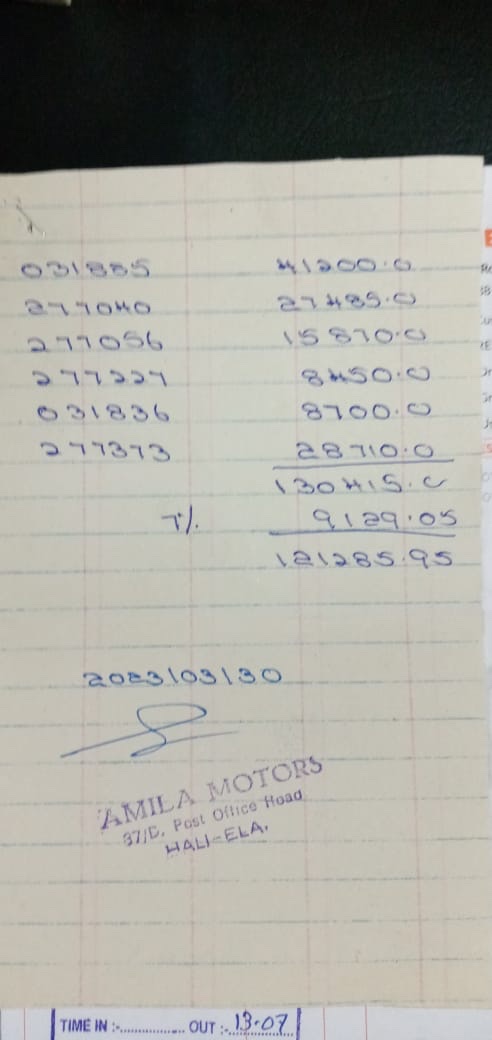 031885 41200.0
277040 27485.0
277056 15870.0
277227 8450.0
031836 8700.0
277373 28710.0
130415.0
7%. 9129.05
121285.95
2023/03/30
AMILA MOTORS
37/C, Post Office Road
HALI-ELA.
TIME IN :-.................. OUT :-13.07